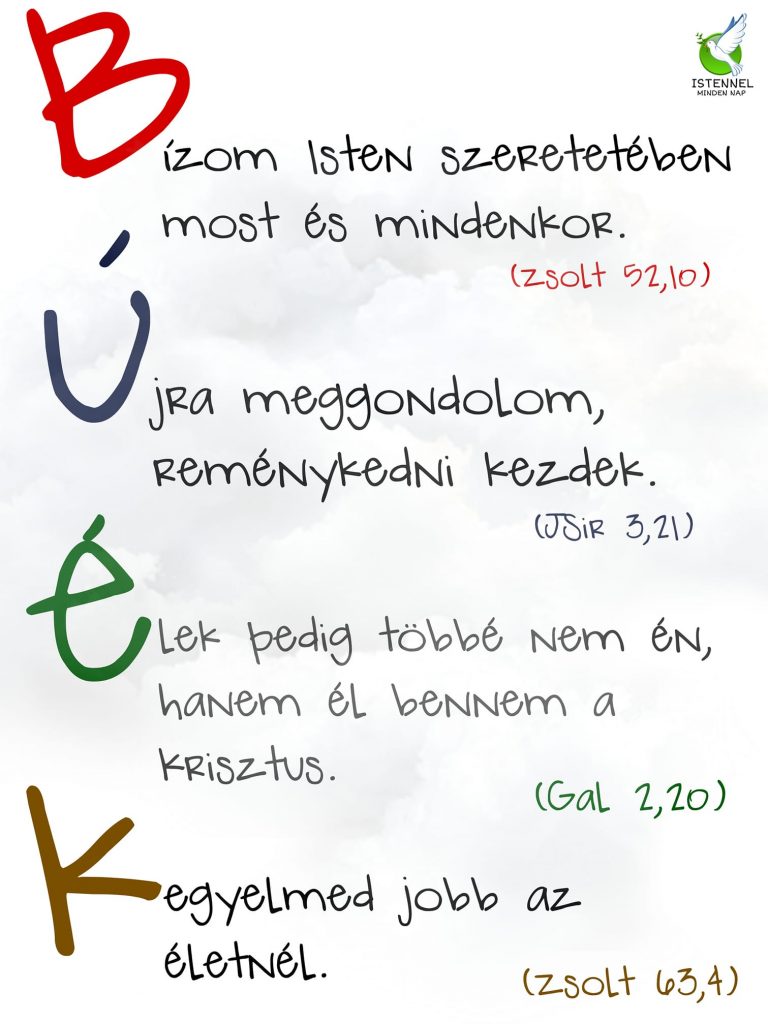 ISTENNEL
MINDEN NAP
Bízom Isten szeretetében
most és mindenkor.
(Zsolt 52,10)
Újra meggondolom,
reménykedni kezdek.
(JSir 3,21)
Élek pedig többé nem én,
hanem él bennem a
Krisztus.
(Gal 2,20)
Kegyelmed jobb az
életnél.
(Zsolt 63,4)